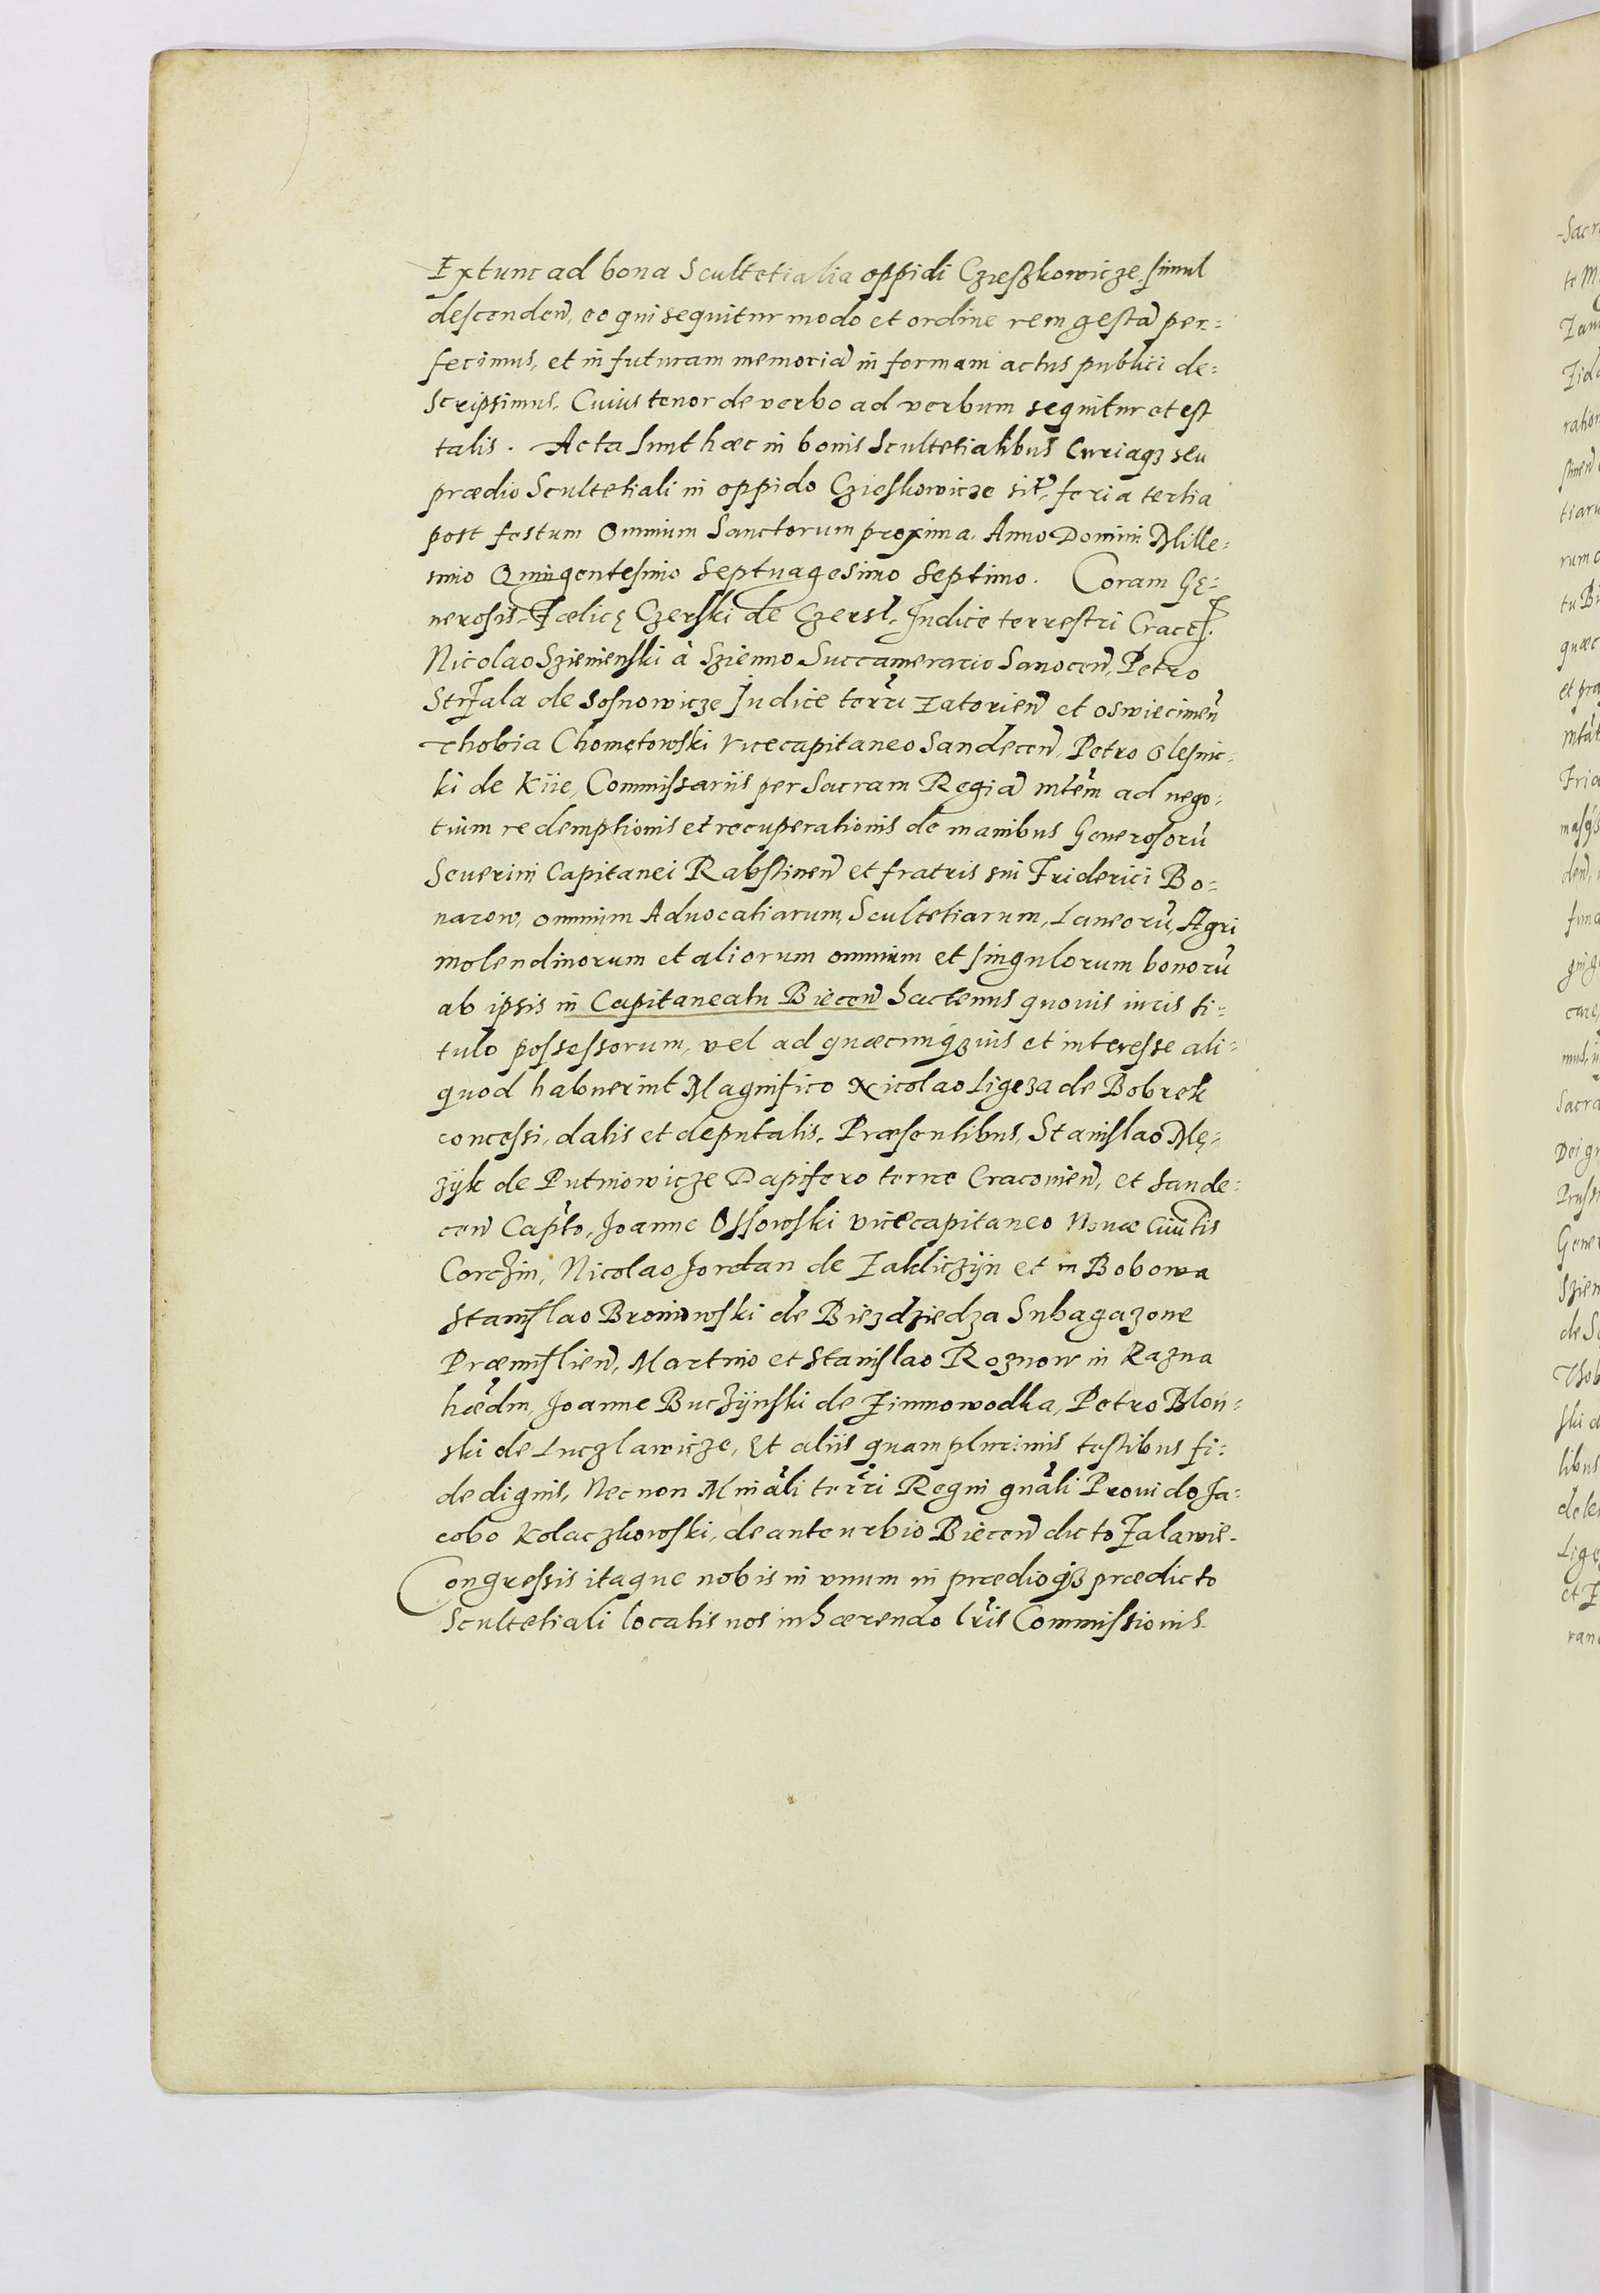 Extunc ad bona Scultetialia oppidi Czieszkowicze, simul
descenden̄, eo qui sequitur modo et ordine rem gestā per-
fecimus, et in futuram memoriā in formam actus publici de-
scripsimus, Cuius tenor de verbo ad verbum sequitur et est
talis. Acta sunt hæc in bonis Scultetialibus Curiaqꝫ seu
prædio Scultetiali in oppido Czieskowicze sit̄, feria tertia
post festum Omnium Sanctorum proxima. Anno Domini Mille-
simo Quingentesimo Septuagesimo Septimo. Coram Ge-
nerosis, Fœlicę Czerski de Czersk, Judice terrestri
Nicolao Szienienski à Szienno Succamerario Sanocen̄, Petro
Strzala de Sosnowicze Judice terrī Zatorien̄ et oswiecimen̄
Thobia Chometowski Vicecapitaneo Sandecen̄, Petro Olesnic-
ki de Kiie, Commissariis per Sacram Regiā mtēm ad nego-
tium redemptionis et recuperationis de manibus Generosorū
Seuerini Capitanei Rabstinen̄ et fratris sui Friderici Bo-
narow, omnium Aduocatiarum, Scultetiarum, Laneorū, Agri
molendinorum et aliorum omnium et singulorum bonorū
ab ipsis in Capitaneatu Biecen̄ hactenus quouis iuris ti-
tulo possessorum, vel ad quæcunqꝫ ius et interesse ali-
quod habuerint Magnifico Nicolao Ligeza de Bobrek
concessi, datis et deputatis, Præsentibus, Stanislao Mę-
zÿk de Putniowicze Dapifero terræ Cracouien̄, et Sande-
cen̄ Cap̄to, Joanne Ossowski vicecapitaneo Nouæ Ciuītis
Corczin, Nicolao Jordan de Zakliczÿn et in Bobowa
Stanislao Broniowski de Biezdziedza Subagazone
Præmislien̄, Martino et Stanislao Roznow in Razna
hǣdm, Joanne Buczÿnski de Zimnowodka, Petro Błoń-
ski de Luczlawicze, Et aliis quam plurimis testibus fi-
de dignis, Necnon Miniāli terrī Regni gnāli Prouido Ja-
cobo Kolaczkowski, de ante urbio Biecen̄ dicto Zalawie.
Congressis itaque nobis in vnum in prædioqꝫ prædicto
Scultetiali locatis nos inhærendo lr̄is Commissionis